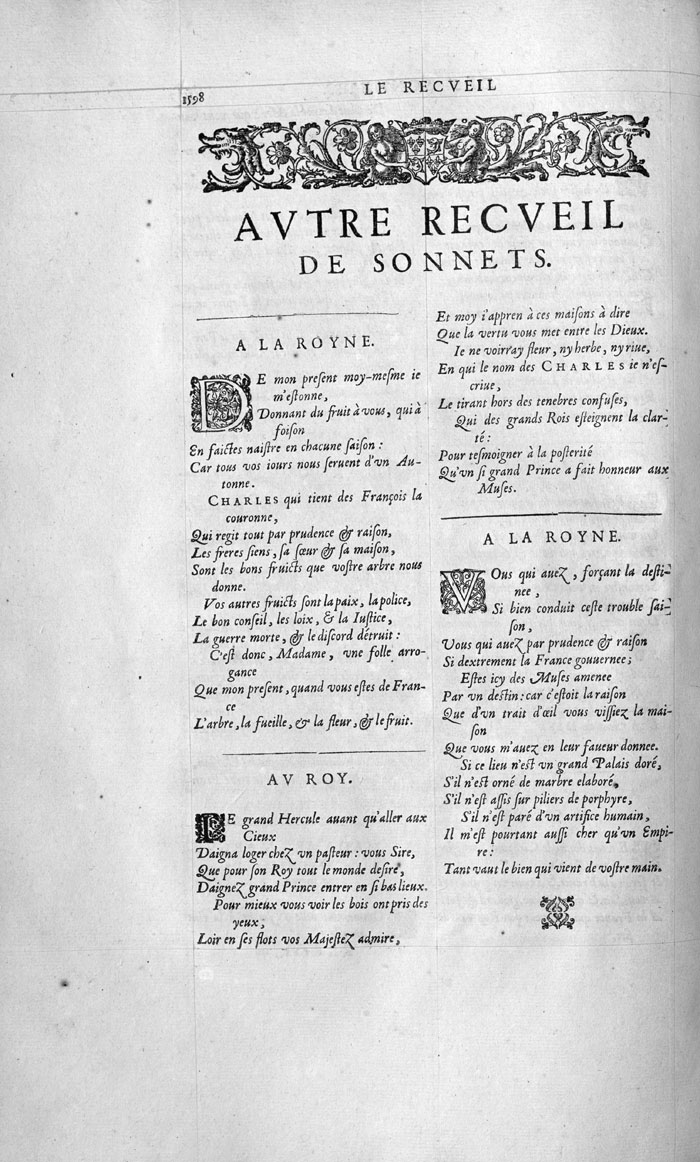 1598
LE RECVEIL
AVTRE RECVEIL
DE SONNETS.
A LA ROYNE.
DE mon preſent moy-meſme ie
m'eſtonne,
Donnant du fruit à vous, qui à
foiſon
En faictes naiſtre en chacune ſaiſon :
Car tous vos iours nous ſeruent d'vn Au-
tonne.
CHARLES qui tient des François la
couronne,
Qui regit tout par prudence & raiſon,
Les freres ſiens, ſa ſœur & ſa maiſon,
Sont les bons fruicts que voſtre arbre nous
donne.
Vos autres fruicts ſont la paix, la police,
Le bon conſeil, les loix, & la Iuſtice,
La guerre morte, & le diſcord détruit :
C'eſt donc, Madame, vne folle arro-
gance
Que mon preſent, quand vous eſtes de Fran-
ce
L'arbre, la fueille, & la fleur, & le fruit.
AV ROY.
LE grand Hercule auant qu'aller aux
Cieux
Daigna loger chez vn paſteur : vous Sire,
Que pour ſon Roy tout le monde deſire,
Daignez grand Prince entrer en ſi bas lieux.
Pour mieux vous voir les bois ont pris des
yeux,
Loir en ſes flots vos Majeſtez admire,
Et moy i'appren à ces maiſons à dire
Que la vertu vous met entre les Dieux.
Ie ne voirray fleur, ny herbe, ny riue,
En qui le nom des CHARLES ie n'eſ-
criue,
Le tirant hors des tenebres confuſes,
Qui des grands Rois eſteignent la clar-
té :
Pour teſmoigner à la poſterité
Qu'vn ſi grand Prince a fait honneur aux
Muſes.
A LA ROYNE.
VOus qui auez, forçant la deſti-
nee,
Si bien conduit ceſte trouble ſai-
ſon,
Vous qui auez par prudence & raiſon
Si dextrement la France gouuernee;
Eſtes icy des Muſes amenee
Par vn deſtin : car c'eſtoit la raiſon
Que d'vn trait d'œil vous viſſiez la mai-
ſon
Que vous m'auez en leur faueur donnee.
Si ce lieu n'eſt vn grand Palais doré,
S'il n'eſt orné de marbre elaboré,
S'il n'eſt aſſis ſur piliers de porphyre,
S'il n'eſt paré d'vn artifice humain,
Il m'eſt pourtant auſſi cher qu'vn Empi-
re :
Tant vaut le bien qui vient de voſtre main.